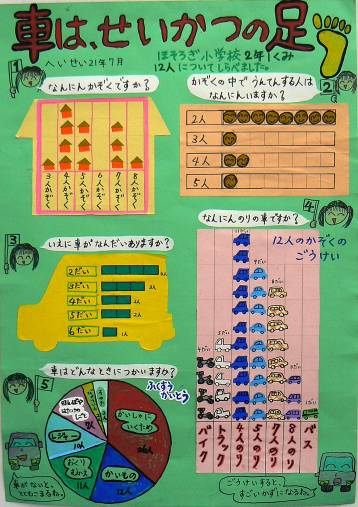 車は、せいかつの足
ほそろぎ小学校 2年1くみ
12人についてしらべました。
へいせい21年7月
1
なんにんかぞくですか?
3人かぞく
4人かぞく
5人かぞく
6人かぞく
7人かぞく
8人かぞく
2
かぞくの中でうんてんする人は
なんにんいますか?
2人
3人
4人
5人
3
いえに車がなんだいありますか?
2だい
3だい
4だい
5だい
6だい
4
なんにんのりの車ですか?
12人のかぞくの
ごうけい
バイク
トラック
4人のり
5人のり
7人のり
8人のり
バス
5
車はどんなときにつかいますか?
ふくすう
かいとう
かいしゃに
いくため
かいもの
12人
おくり
むかえ
11人
レジャー
10人
車がないと、
とてもこまるね。
ごうけいすると、
すごいかずになるね。